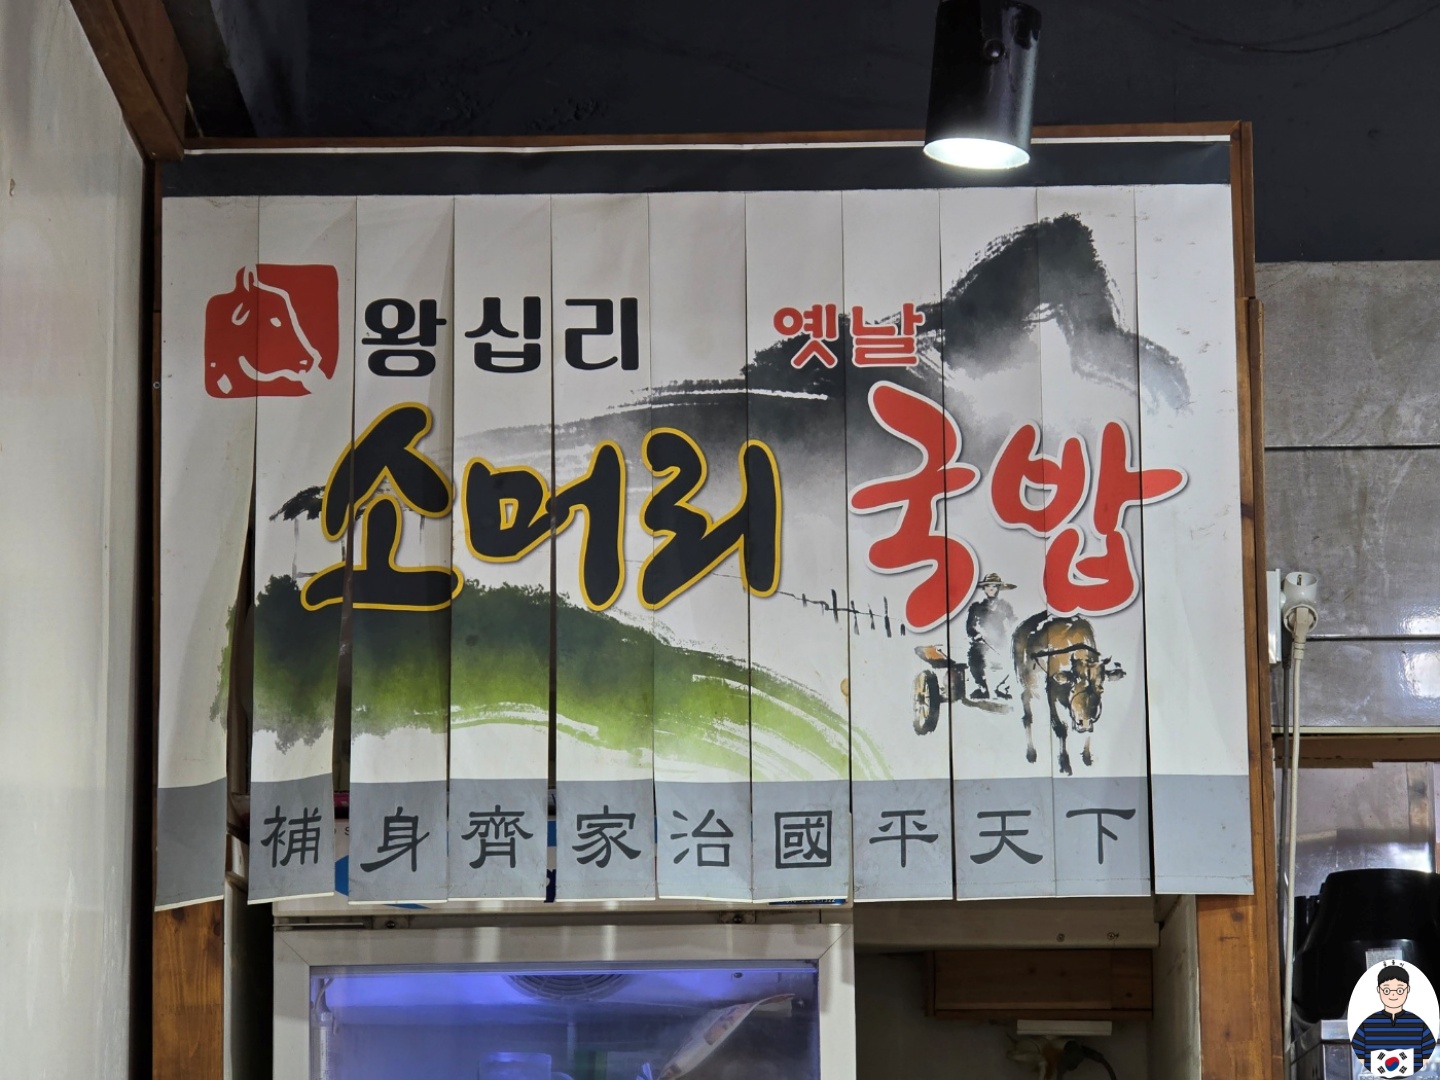 왕십리 옛날
소머리 국밥
補身齊家治國平天下